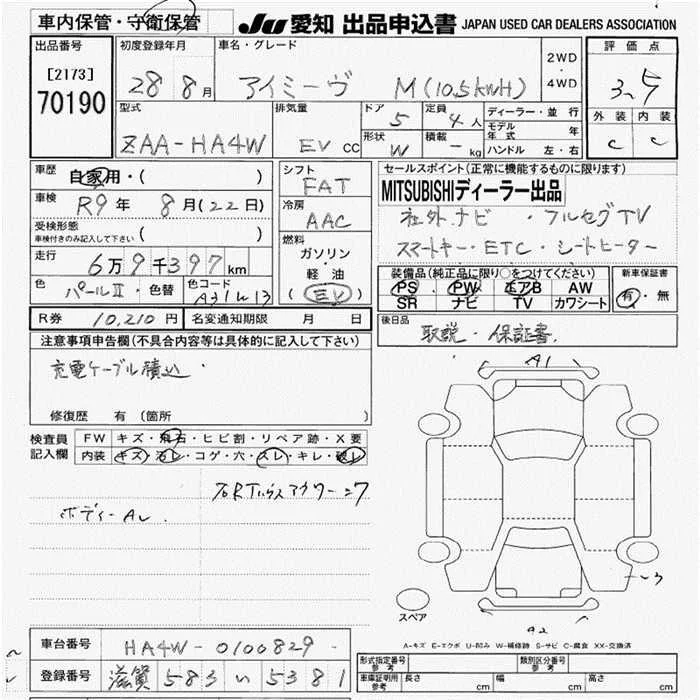 車内保管・守衛保管 JU 愛知 出品申込書 JAPAN USED CAR DEALERS ASSOCIATION
出品番号 [2173] 70190
初度登録年月 28年 8月
車名・グレード アイミーヴ M(10.5kwH)
2WD・4WD
評価点 3.5
外装 C 内装 C
型式 ZAA-HA4W
排気量 EV CC
ドア 5 定員 4人
形状 W 積載 - kg
ディーラー・並行
モデル年式 年
ハンドル 左・右
車歴 自家用・( )
車検 R9年 8月(22日)
受検形態 車検付きのみ記入して下さい ( )
走行 6万9千397km
色 パールⅡ・色替 色コード
シフト FAT
冷房 AAC
燃料 ガソリン・軽油 (EV)
セールスポイント(正常に機能するものに限ります)
MITSUBISHIディーラー出品
社外ナビ・フルセグTV
スマートキー・ETC・シートヒーター
装備品(純正品に限り○をつけてください)
PS PW エアB AW
SR ナビ TV カワシート
新車保証書 有・無
R券 10,210円 名変通知期限 月 日
後日品 取説・保証書
注意事項申告欄(不具合内容等は具体的に記入して下さい)
充電ケーブル積込
修復歴 有(箇所 )
検査員記入欄
FW キズ・飛石・ヒビ割・リペア跡・X要
内装 キズ・汚レ・コゲ・穴・スレ・キレ・破レ
ボディーAU.
A1
3
A2
スペア
A-キズ E-エクボ U-凹み W-補修跡 S-サビ C-腐食 XX-交換済
車台番号 HA4W-0100829
登録番号 滋賀 583 い 5381
形式指定番号 参考 類別区分番号 参考
車庫証明用 参考 長さ cm 幅 cm 高さ cm